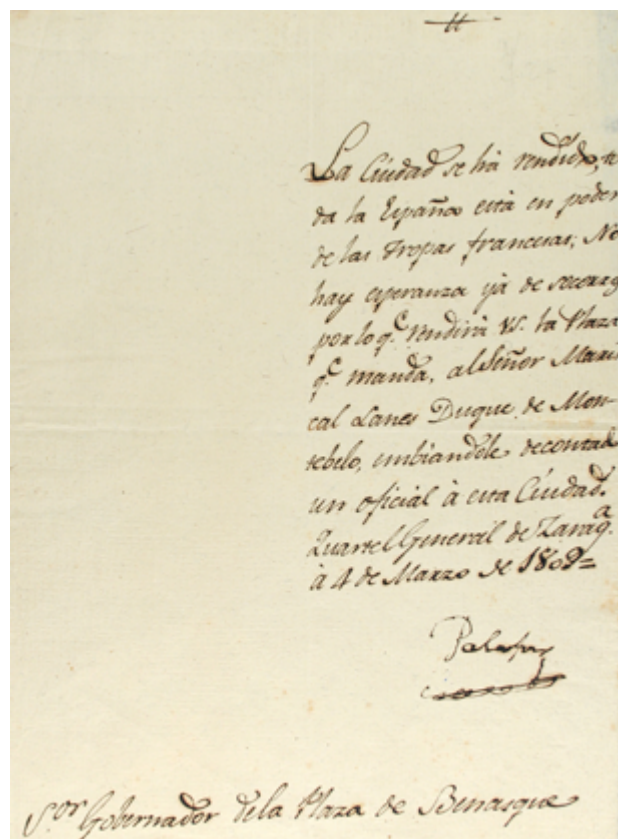 La Ciudad se há rendido, to
da la España está en poder
de las tropas francesas; No
hay esperanza yá de socorro
por lo q.e rendirá VS. la Plaza
q.e manda, al Señor Maris
cal Lanes Duque de Mon-
tebelo, embiandole decontado
un oficial à esta Ciudad.
Quartel General de Zarag.a
à 4 de Marzo de 1809=
Palafox
S.or Gobernador dela Plaza de Benasque